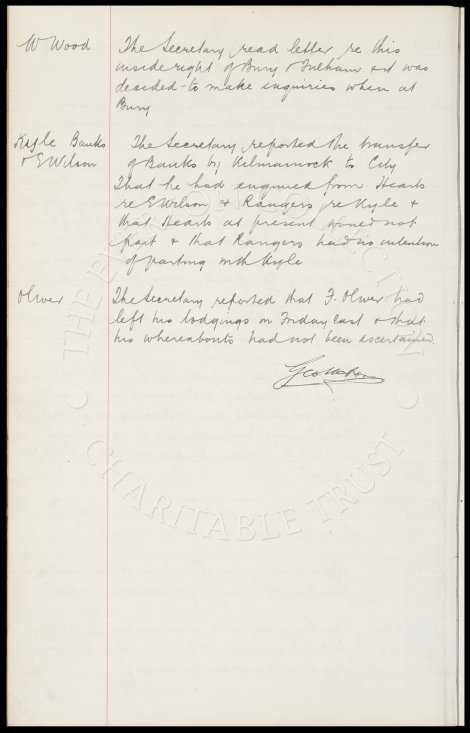 W Wood
The Secretary read letter re this
inside right of Bury & Fulham & it was
decided to make inquiries when at
Bury
Kyle Banks
& E Wilson
The Secretary reported the transfer
of Banks by Kilmarnock to City
That he had enquired from Hearts
re E Wilson & Rangers re Kyle &
that Hearts at present would not
part & that Rangers had no intention
of parting with Kyle
Oliver
The Secretary reported that F. Oliver had
left his lodgings on Friday last & that
his whereabouts had not been ascertained
THE EVERTON COLLECTION
CHARITABLE TRUST